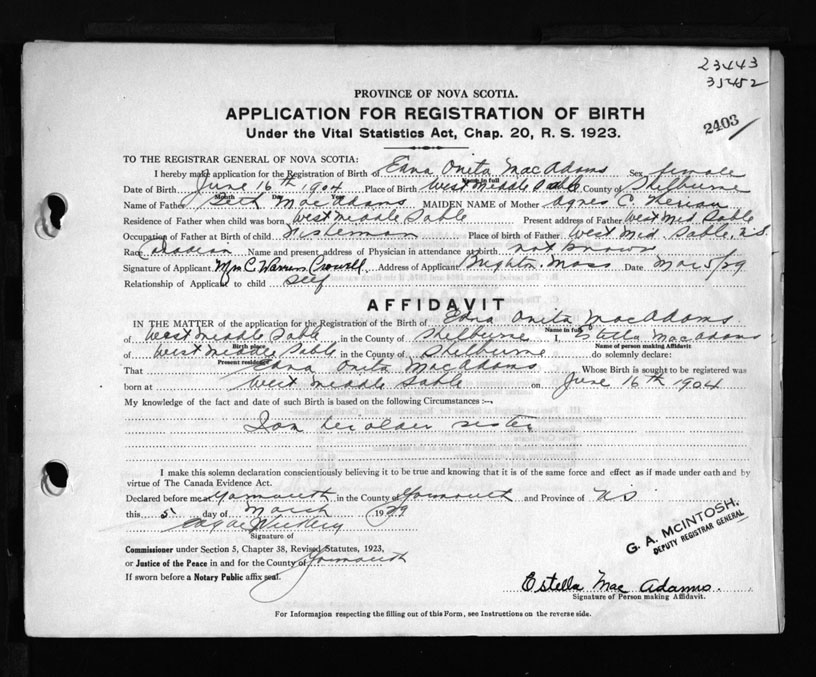 23443
35452
2403
PROVINCE OF NOVA SCOTIA.
APPLICATION FOR REGISTRATION OF BIRTH
Under the Vital Statistics Act, Chap. 20, R. S. 1923.
TO THE REGISTRAR GENERAL OF NOVA SCOTIA:
I hereby make application for the Registration of Birth of Edna Onita MacAdams Sex female
Name in full
Date of Birth June 16th 1904 Place of Birth West Middle Sable County of Shelburne
Month Day Year
Name of Father Seth MacAdams MAIDEN NAME of Mother Agnes C
Residence of Father when child was born West Middle Sable Present address of Father West Mid. Sable
Occupation of Father at Birth of child Fisherman Place of birth of Father West Mid. Sable, N.S.
Race Name and present address of Physician in attendance at birth not known
Signature of Applicant Mrs C Warren Crowell Address of Applicant Brighton Mass Date Mar 5/29
Relationship of Applicant to child self
AFFIDAVIT
IN THE MATTER of the application for the Registration of the Birth of Edna Onita MacAdams
Name in full
of West Middle Sable in the County of Shelburne I, Estella MacAdams
Birth place Name of person making Affidavit
of West Middle Sable in the County of Shelburne do solemnly declare:
Present residence
That Edna Onita MacAdams Whose Birth is sought to be registered was
born at West Middle Sable on June 16th 1904
My knowledge of the fact and date of such Birth is based on the following Circumstances :—
I am her older sister
I make this solemn declaration conscientiously believing it to be true and knowing that it is of the same force and effect as if made under oath and by
virtue of The Canada Evidence Act.
Declared before me at Yarmouth in the County of Yarmouth and Province of NS
this 5 day of March 1929
Signature of
Commissioner under Section 5, Chapter 38, Revised Statutes, 1923,
or Justice of the Peace in and for the County of Yarmouth
If sworn before a Notary Public affix seal.
G. A. McINTOSH.
DEPUTY REGISTRAR GENERAL
Estella Mac Adams.
Signature of Person making Affidavit.
For Information respecting the filling out of this Form, see Instructions on the reverse side.